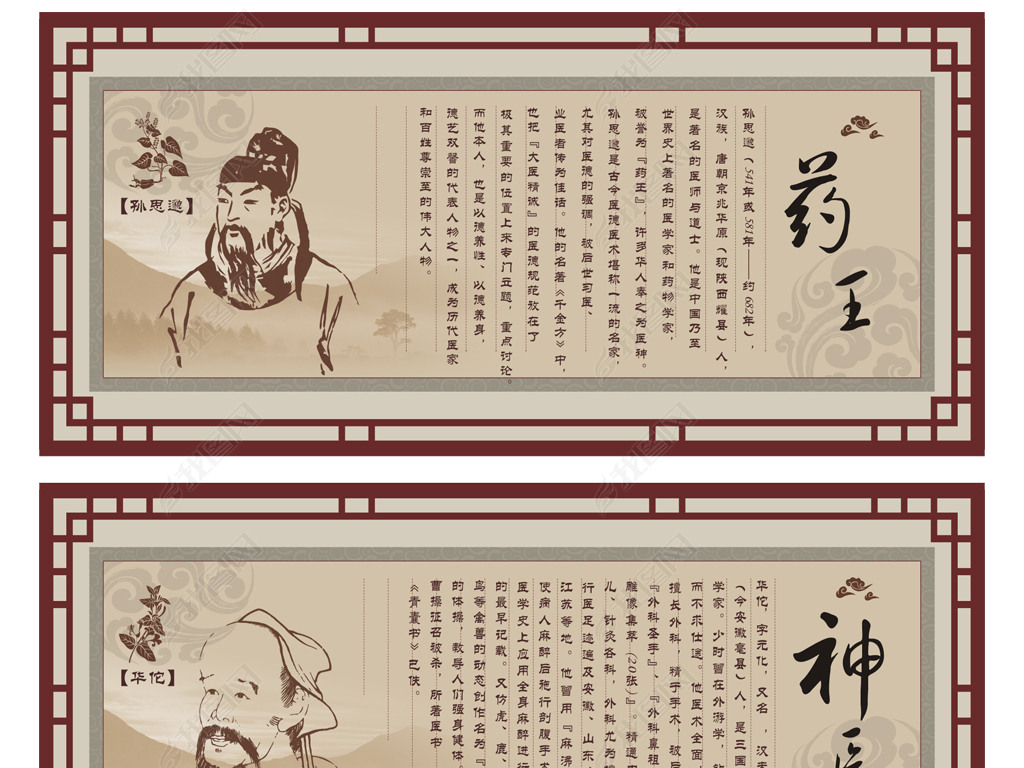 药王
孙思邈（541年或581年——约682年），
汉族，唐朝京兆华原（现陕西耀县）人，
是著名的医师与道士。他是中国乃至
世界史上著名的医学家和药物学家，
被誉为『药王』，许多华人奉之为医神。
孙思邈是古今医德医术堪称一流的名家，
尤其对医德的强调，被后世习医、
业医者传为佳话。他的名著《千金方》中，
也把『大医精诚』的医德规范放在了
极其重要的位置上来专门立题，重点讨论。
而他本人，也是以德养性、以德养身，
德艺双馨的代表人物之一，成为历代医家
和百姓尊崇至的伟大人物。
【孙思邈】
神
华佗，字元化，又名 ，汉
（今安徽亳县）人，是三国
学家。少时曾在外游学，
而不求仕途。他医术全面，
擅长外科，精于手术，被后
『外科圣手』、『外科鼻祖
雕像集萃（20张）』。精通
儿、针灸各科，外科尤为
行医足迹遍及安徽、山东、
江苏等地。他曾用『麻沸
使病人麻醉后施行剖腹手术
医学史上应用全身麻醉进行
的最早记载。又仿虎、鹿、
鸟等禽兽的动态创作名为『
的体操，教导人们强身健体。
曹操征召被杀，所著医书
《青囊书》已佚。
【华佗】